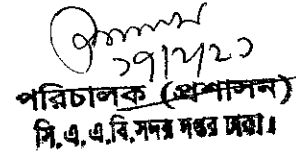 ২৭/২/২১
পরিচালক (প্রশাসন)
সি.এ.এ.বি.সদর দপ্তর ঢাকা।